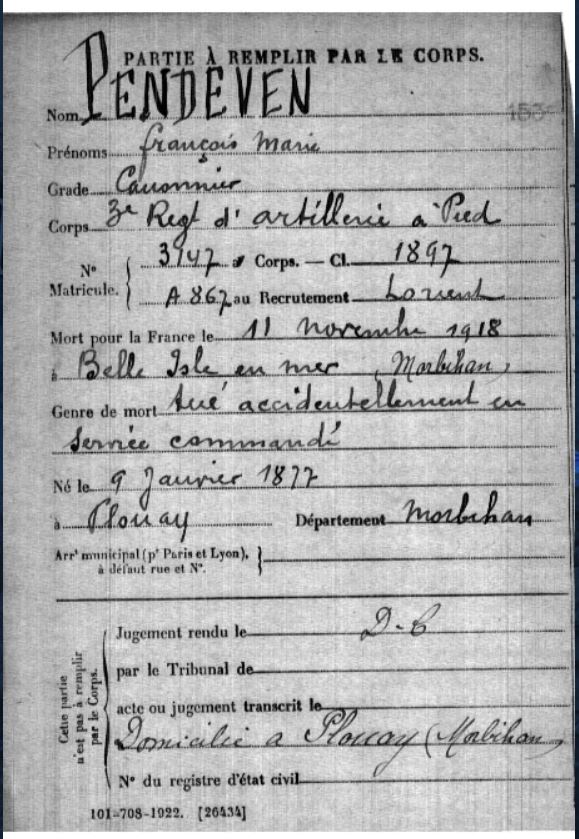 PARTIE À REMPLIR PAR LE CORPS.
Nom PENDEVEN
Prénoms françois Marie
Grade Canonnier
Corps 3e Regt d'artillerie à Pied
N° Matricule. { 3747 au Corps. — Cl. 1897
A 867 au Recrutement Lorient
Mort pour la France le 11 novembre 1918
à Belle Isle en mer (Morbihan)
Genre de mort tué accidentellement en
service commandé
Né le 9 Janvier 1877
à Plouay Département Morbihan
Arrt municipal (pr Paris et Lyon), }
à défaut rue et N°.
Cette partie n'est pas à remplir par le Corps.
Jugement rendu le D-C
par le Tribunal de
acte ou jugement transcrit le
Domicilié a Plouay (Morbihan)
N° du registre d'état civil
101-708-1922. [26434]